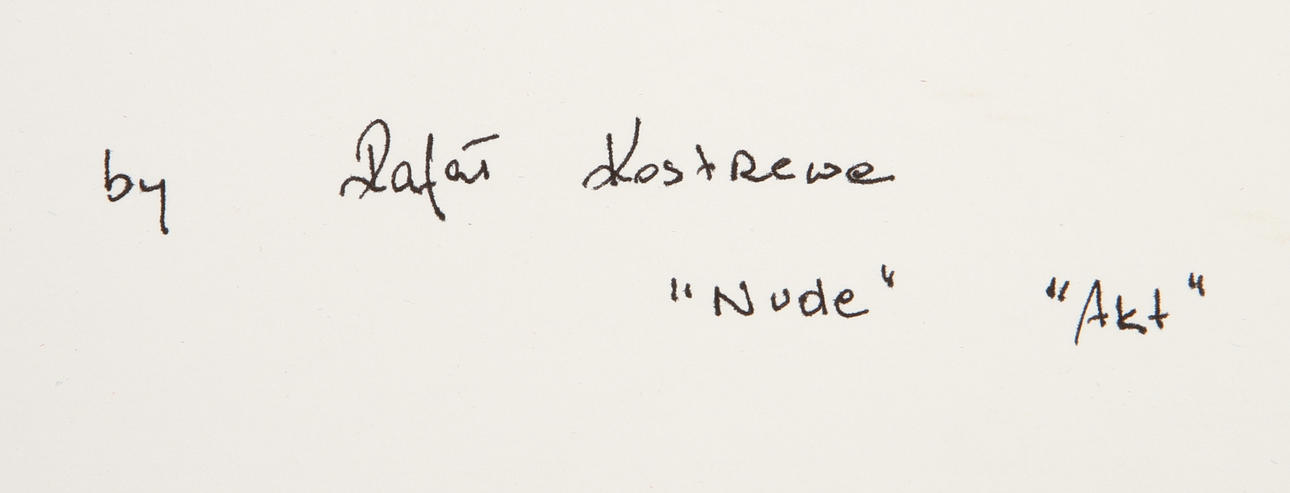 by Rafał Kostrzewa
"Nude" "Akt"